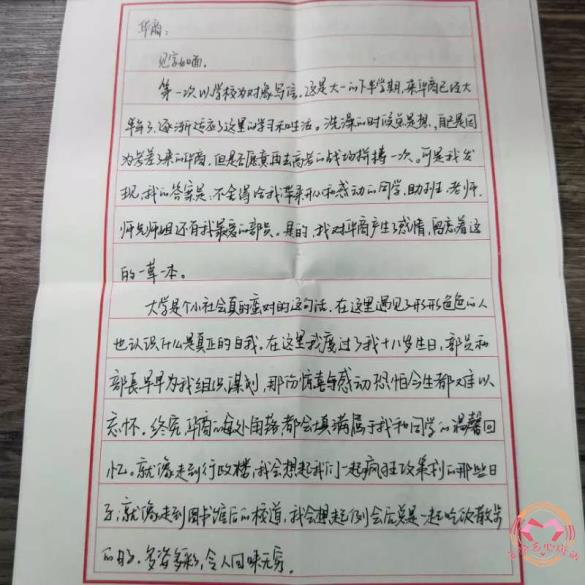 华商：
见字如面。
第一次以学校为对象写信。这是大一的下半学期，来华商已经大
半年了，逐渐适应了这里的学习和生活。洗澡的时候总是想，自己是因
为考差来的华商，但是否愿意再去高考的战场拼搏一次。可是我发
现，我的答案是，不舍得给我带来开心和感动的同学，助班，老师，
师兄师姐还有我最爱的部员。是的，我对华商产生了感情，留恋着这
的一草一本。
大学是个小社会真的蛮对的这句话，在这里遇见了形形色色的人
也认识什么是真正的自我。在这里我度过了我十八岁生日，部员和
部长早早为我组织谋划，那份惊喜与感动恐怕今生都难以
忘怀。终究华商的每处角落都会填满属于我和同学的温馨回
忆。就像走到行政楼，我会想起我们一起疯狂改集刊的那些日
子；就像走到图书馆后的校道，我会想起例会后总是一起吃饭散步
的日子，多姿多彩，令人回味无穷。